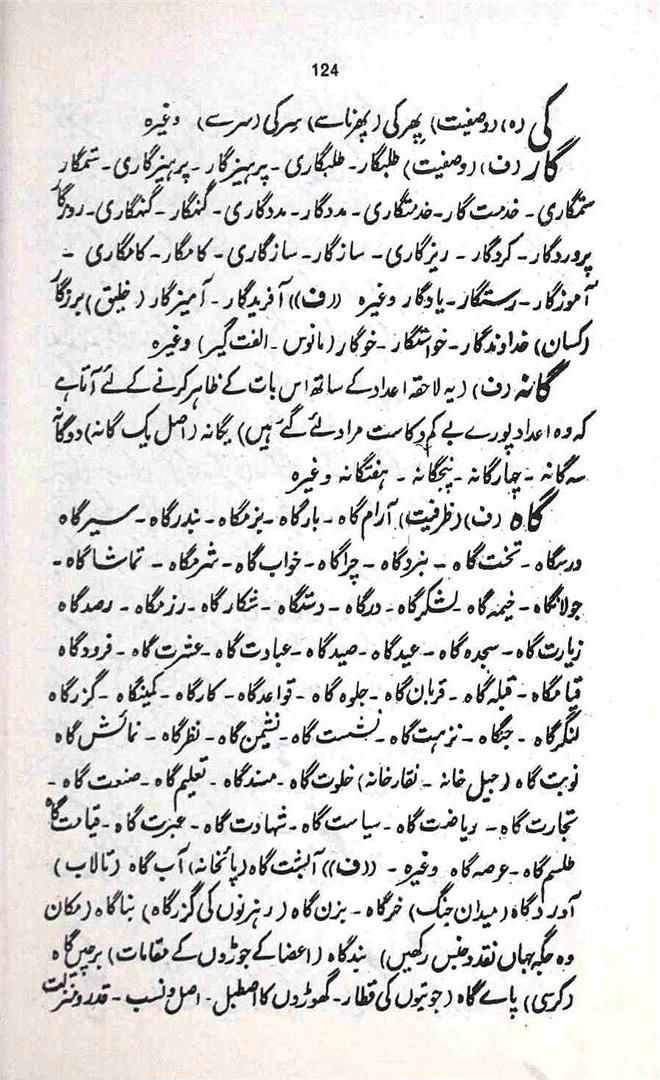 124
کی (ہ) (وصفیت) پھرکی (پھرنا سے) سرکی (سر سے) وغیرہ
گار (ف) (وصفیت) طلبگار۔ طلبگاری۔ پرہیزگار۔ پرہیزگاری۔ ستمگار
ستمگاری۔ خدمت گار۔ خدمتگاری۔ مددگار۔ مددگاری۔ گنہگار۔ گنہگاری۔ روزگار
پروردگار۔ کردگار۔ ریزگاری۔ سازگار۔ سازگاری۔ کامگار۔ کامگاری۔
آموزگار۔ رستگار۔ یادگار وغیرہ ((ف)) آفریدگار۔ آمیزگار (خلیق) برزگار
(کسان) خداوندگار۔ خواستگار۔ خوگار (مانوس۔ الفت گیر) وغیرہ
گانہ (ف) (یہ لاحقہ اعداد کے ساتھ اس بات کے ظاہر کرنے کے لئے آتا ہے
کہ وہ اعداد پورے بے کم و کاست مراد لئے گئے ہیں) یگانہ (اصل یک گانہ) دوگانہ
سہ گانہ۔ چہارگانہ۔ پنجگانہ۔ ہفتگانہ وغیرہ
گاہ (ف) (ظرفیت) آرام گاہ۔ بارگاہ۔ بزمگاہ۔ بندرگاہ۔ سیرگاہ
درسگاہ۔ تخت گاہ۔ نبردگاہ۔ چراگاہ۔ خواب گاہ۔ شرمگاہ۔ تماشا گاہ۔
جولانگاہ۔ خیمہ گاہ۔ لشکرگاہ۔ درگاہ۔ دستگاہ۔ شکارگاہ۔ رزمگاہ۔ رصدگاہ
زیارت گاہ۔ سجدہ گاہ۔ عیدگاہ۔ صیدگاہ۔ عبادت گاہ۔ عشرت گاہ۔ فرودگاہ
قیامگاہ۔ قبلہ گاہ۔ قربان گاہ۔ جلوہ گاہ۔ قواعدگاہ۔ کارگاہ۔ کمینگاہ۔ گزرگاہ
لنگرگاہ۔ جنگاہ۔ نزہت گاہ۔ نشست گاہ۔ نشیمن گاہ۔ نظرگاہ۔ نمائش گاہ
نوبت گاہ (جیل خانہ۔ نقارخانہ) خلوت گاہ۔ مسندگاہ۔ تعلیم گاہ۔ صنعت گاہ۔
تجارت گاہ۔ ریاضت گاہ۔ سیاست گاہ۔ شہادت گاہ۔ عبرت گاہ۔ قیامت گاہ
طلسم گاہ۔ عرصہ گاہ وغیرہ۔ ((ف)) آلبشت گاہ (پائخانہ) آب گاہ (تالاب)
آوردگاہ (میدان جنگ) خرگاہ۔ بزن گاہ (رہزنوں کی گزرگاہ) بنا گاہ (مکان
وہ جگہ جہاں نقد و جنس رکھیں) بندگاہ (اعضا کے جوڑوں کے مقامات) برجیس گاہ
(کرسی) پائے گاہ (جوتیوں کی قطار۔ گھوڑوں کا اصطبل۔ اصل و نسب۔ قدر و منزلت